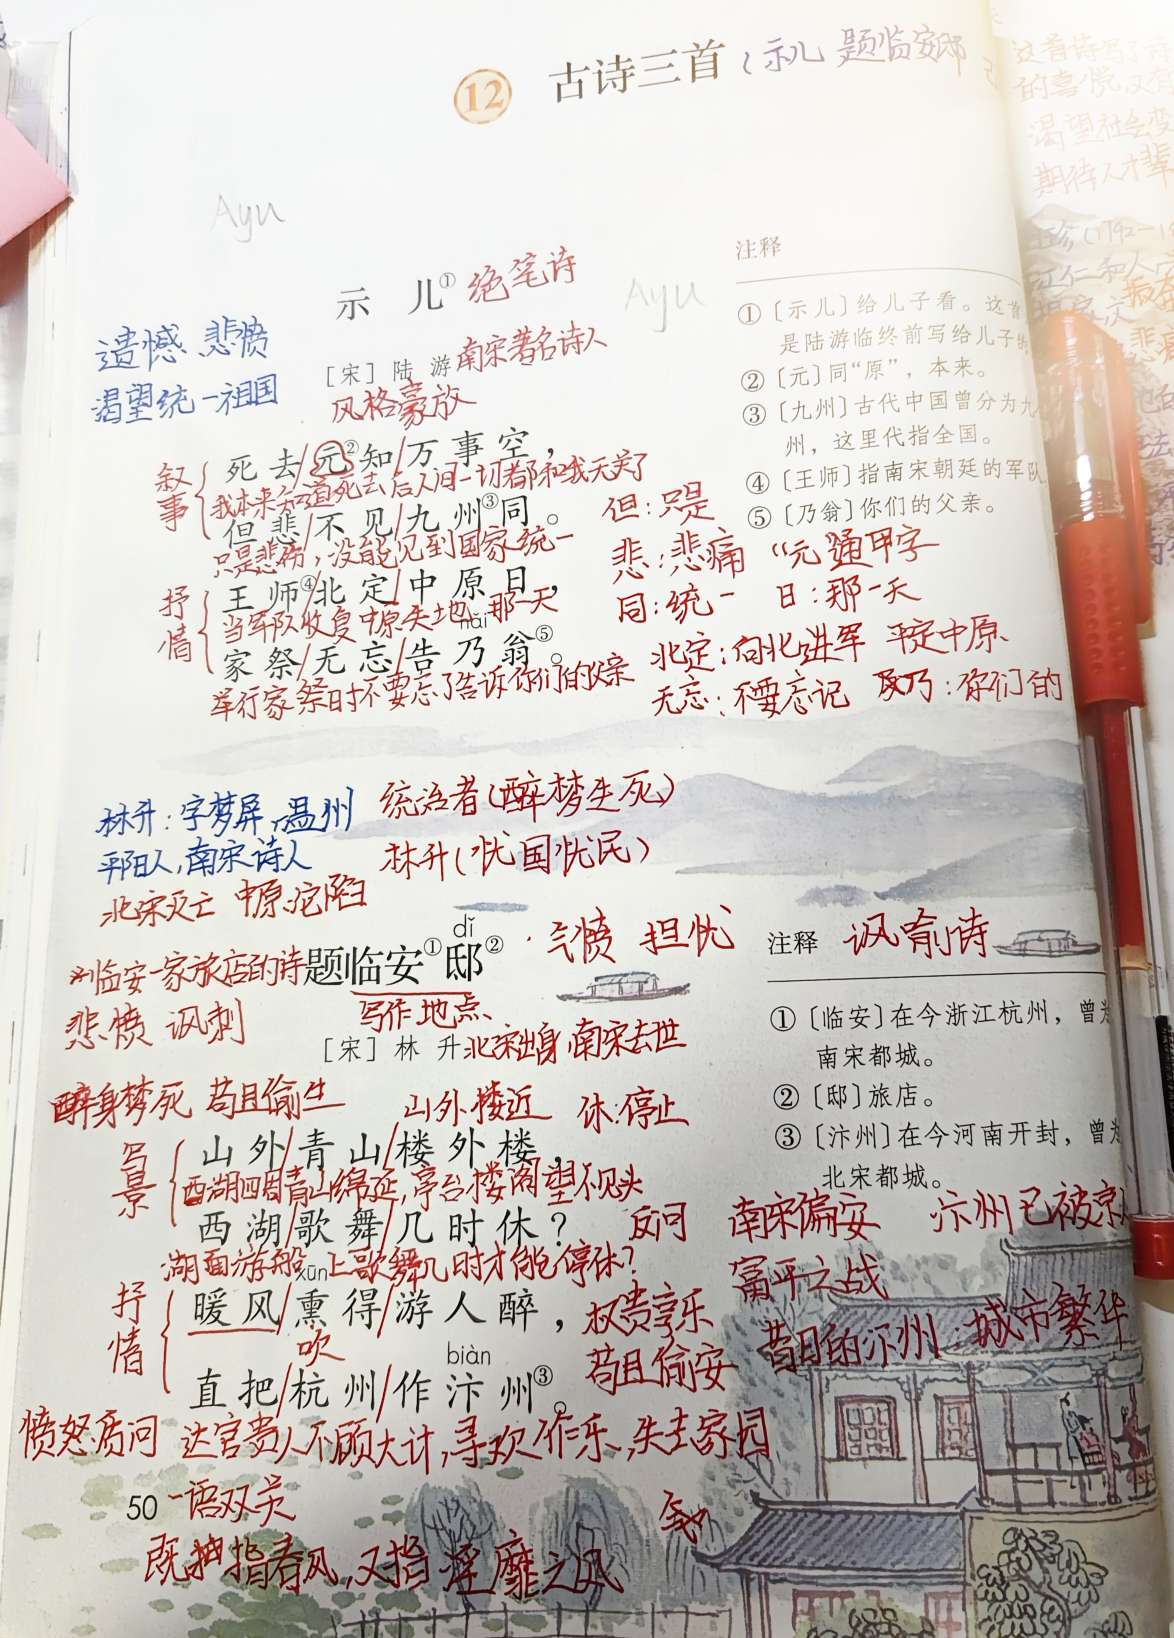 12 古诗三首 (示儿 题临安邸 己
Ayu
示 儿① 绝笔诗
Ayu
[宋] 陆 游 南宋著名诗人
风格豪放
遗憾 悲愤
渴望统一祖国
叙事
死去/元②知/万事空，
我本来知道死去后人间一切都和我无关了
但悲/不见/九州③同。
只是悲伤，没能见到国家统一
抒情
王师④/北定/中原日，
当军队收复中原失地 那一天
nǎi
家祭/无忘/告乃翁⑤。
举行家祭时不要忘了告诉你们的父亲
注释
①〔示儿〕给儿子看。这首
是陆游临终前写给儿子的
②〔元〕同“原”，本来。
③〔九州〕古代中国曾分为九
州，这里代指全国。
④〔王师〕指南宋朝廷的军队
⑤〔乃翁〕你们的父亲。
但：只是
悲：悲痛 “元”通甲字
同：统一 日：那一天
北定：向北进军 平定中原、
无忘：不要忘记 乃：你们的
林升：字梦屏，温州
平阳人，南宋诗人
统治者(醉梦生死)
林升(忧国忧民)
北宋灭亡 中原沦陷
dǐ
临安一家旅店的诗 题临安①邸② 气愤 担忧
悲愤 讽刺 写作地点、
[宋] 林 升 北宋出身，南宋去世
醉身梦死 苟且偷生 山外楼近 休：停止
写景
山外/青山/楼外楼，
西湖四周青山绵延，亭台楼阁望不见头
西湖/歌舞/几时休？ 反问
湖面游船上歌舞几时才能停休？
抒情
xūn
暖风/熏得/游人醉， 权贵享乐
吹
biàn
直把/杭州/作汴州③。 苟且偷安
注释 讽喻诗
①〔临安〕在今浙江杭州，曾为
南宋都城。
②〔邸〕旅店。
③〔汴州〕在今河南开封，曾为
北宋都城。
南宋偏安 汴州已被
富平之战
昔日的汴州：城市繁华
愤怒质问 达官贵人不顾大计，寻欢作乐，失去家园
50 一语双关
既指春风，又指淫靡之风
这首诗写了诗
的喜悦，又有
渴望社会变
期待人才辈